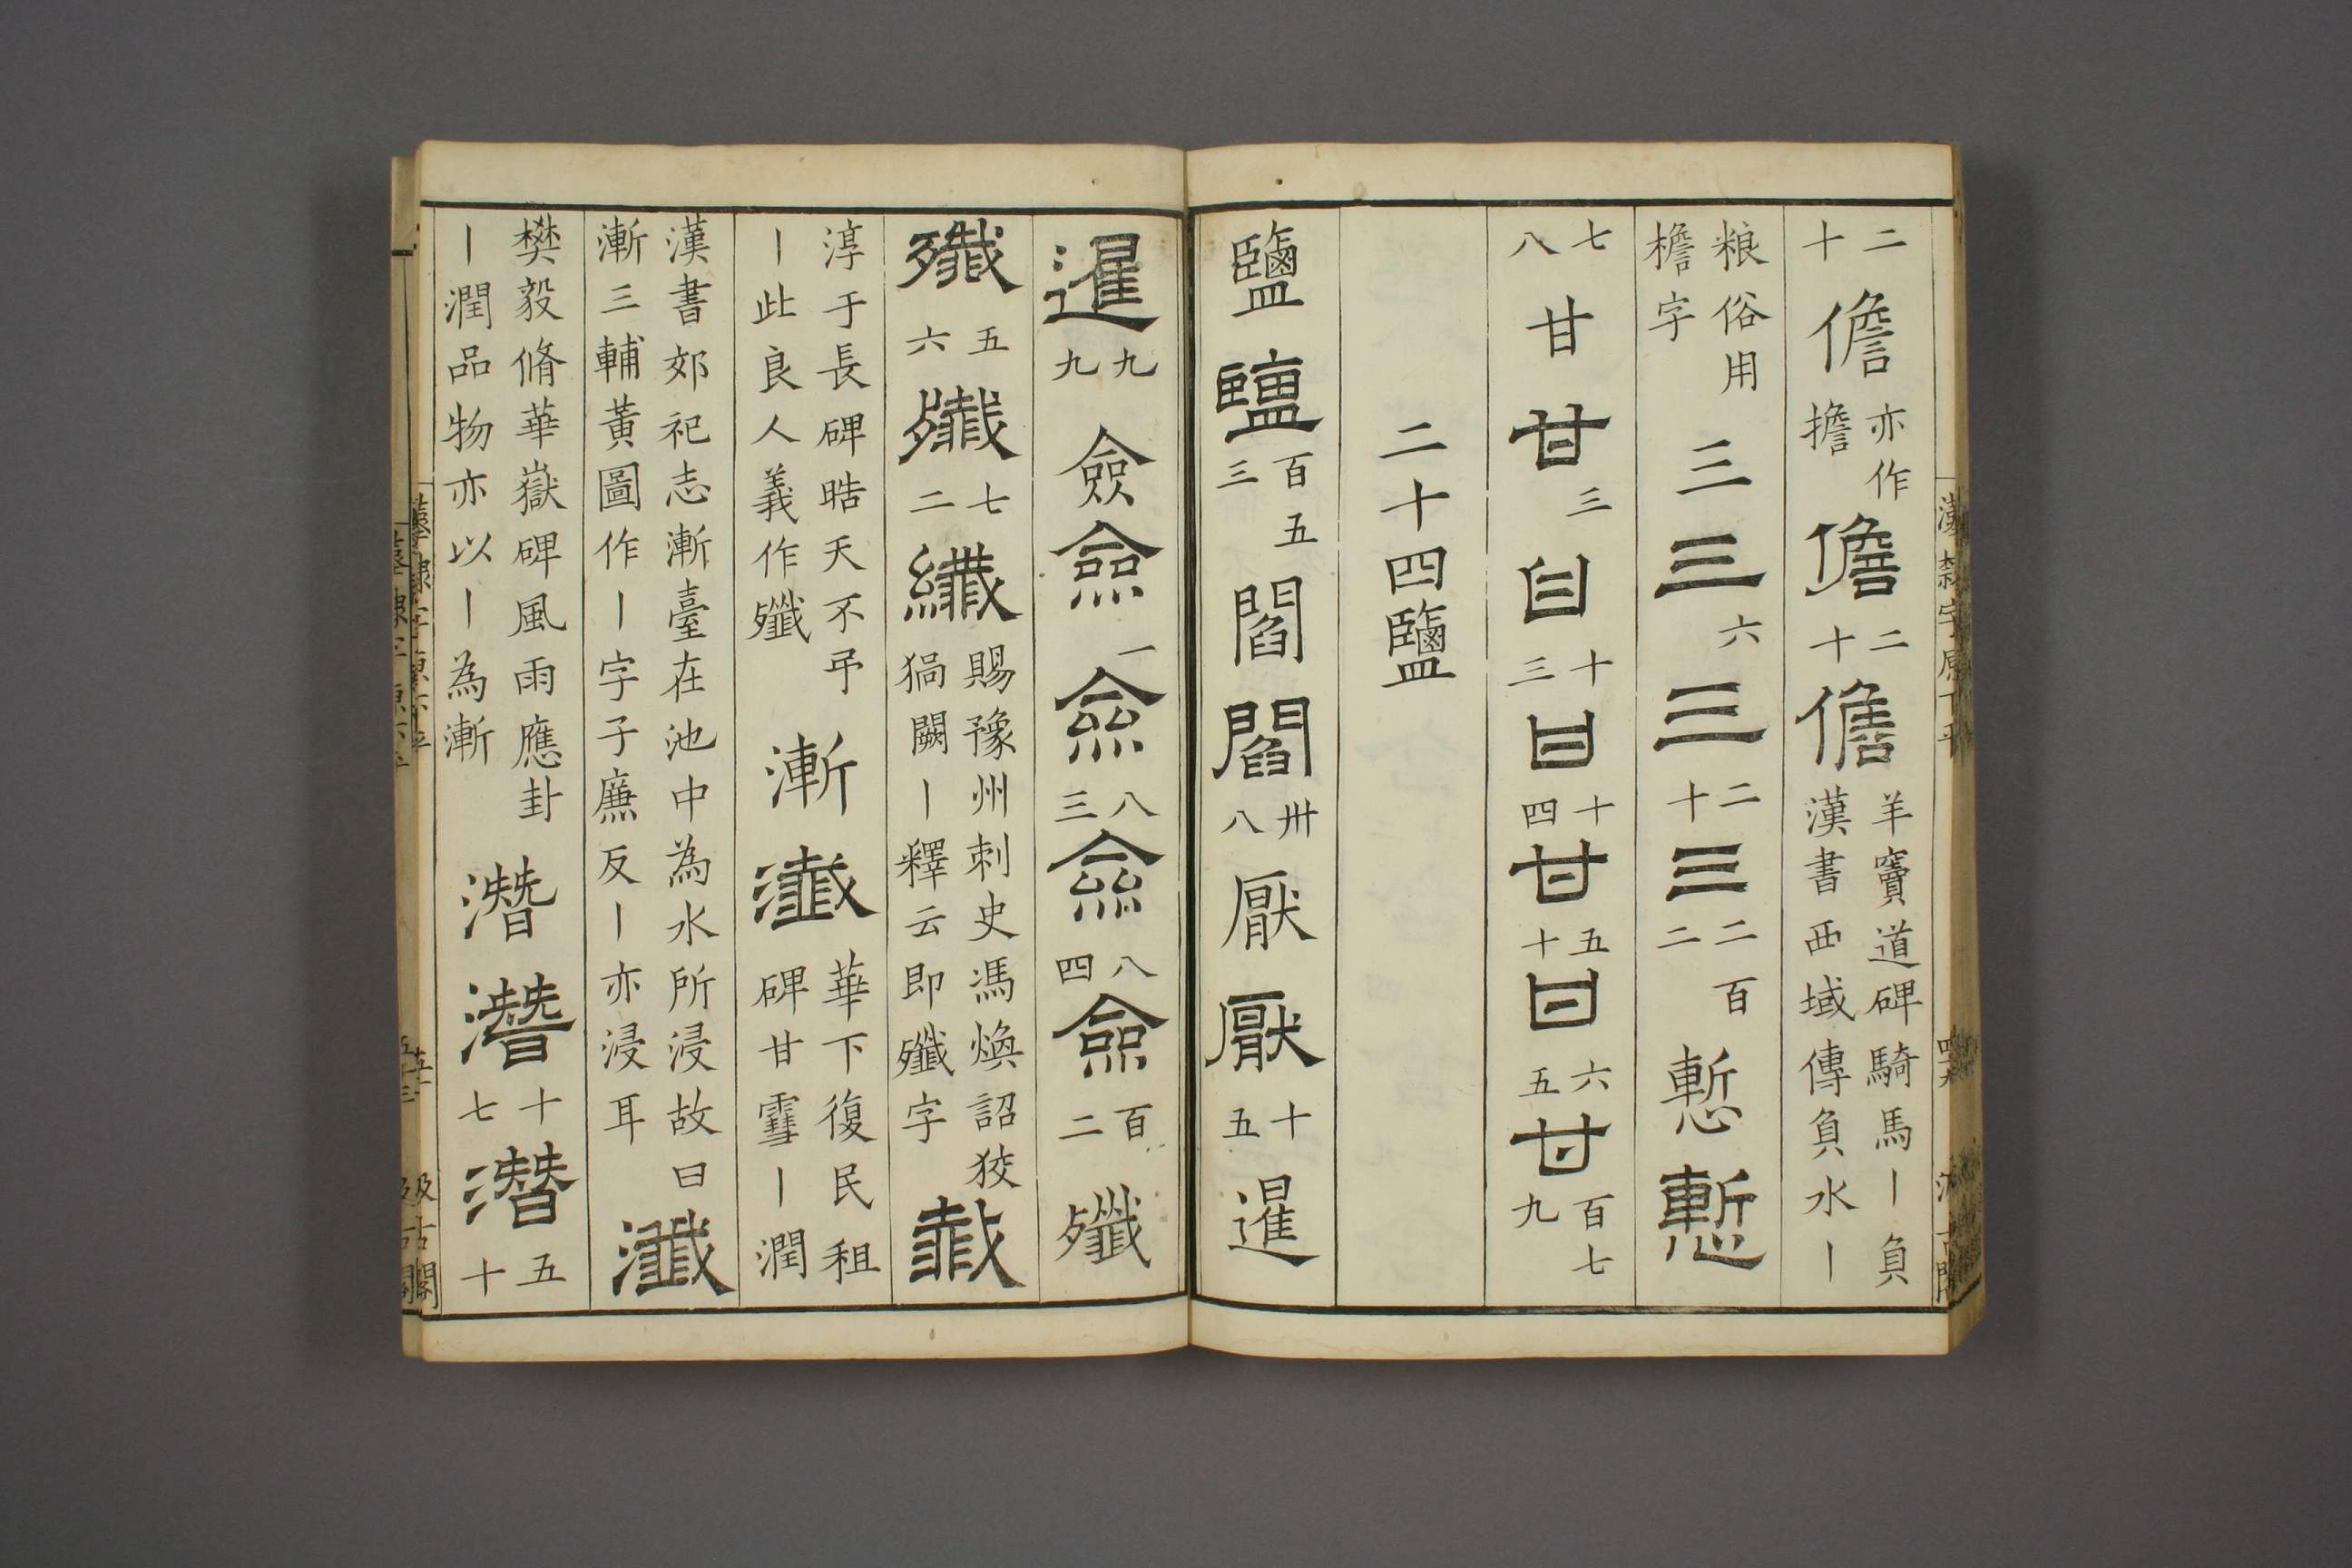 二十儋亦作擔儋二十儋羊竇道碑騎馬丨負漢書西域傳負水丨
粮俗用檐字三三六三二十三二百二慙慙
七八甘甘三甘十三甘十四甘五十甘六五甘百七九
二十四鹽
鹽鹽百五三閻閻卅八厭厭十五暹
暹九九僉僉一僉八三僉八四僉百二殲
殲五六殲七二纖賜豫州刺史馮煥詔狡猾闕丨釋云即殲字
淳于長碑晧天不弔丨此良人義作殲漸瀸華下復民租碑甘雪丨潤
漢書郊祀志漸臺在池中為水所浸故曰漸三輔黃圖作丨字子廉反丨亦浸耳瀸
樊毅脩華嶽碑風雨應卦丨潤品物亦以丨為漸潛潛十七潛五十